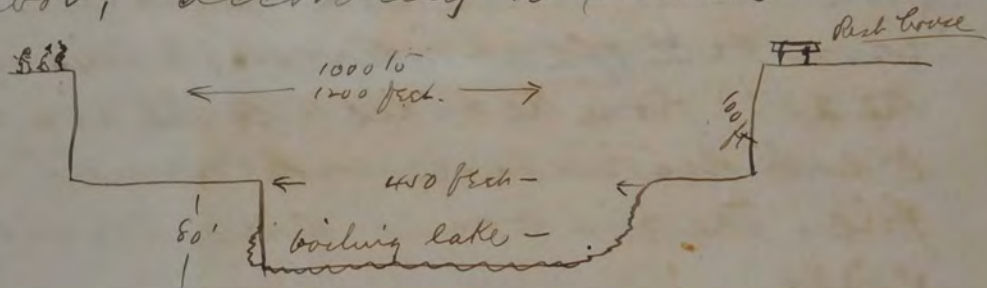 according to
Rest house
1000 to
1200 feet.
100 ft
450 feet -
80'
boiling lake -